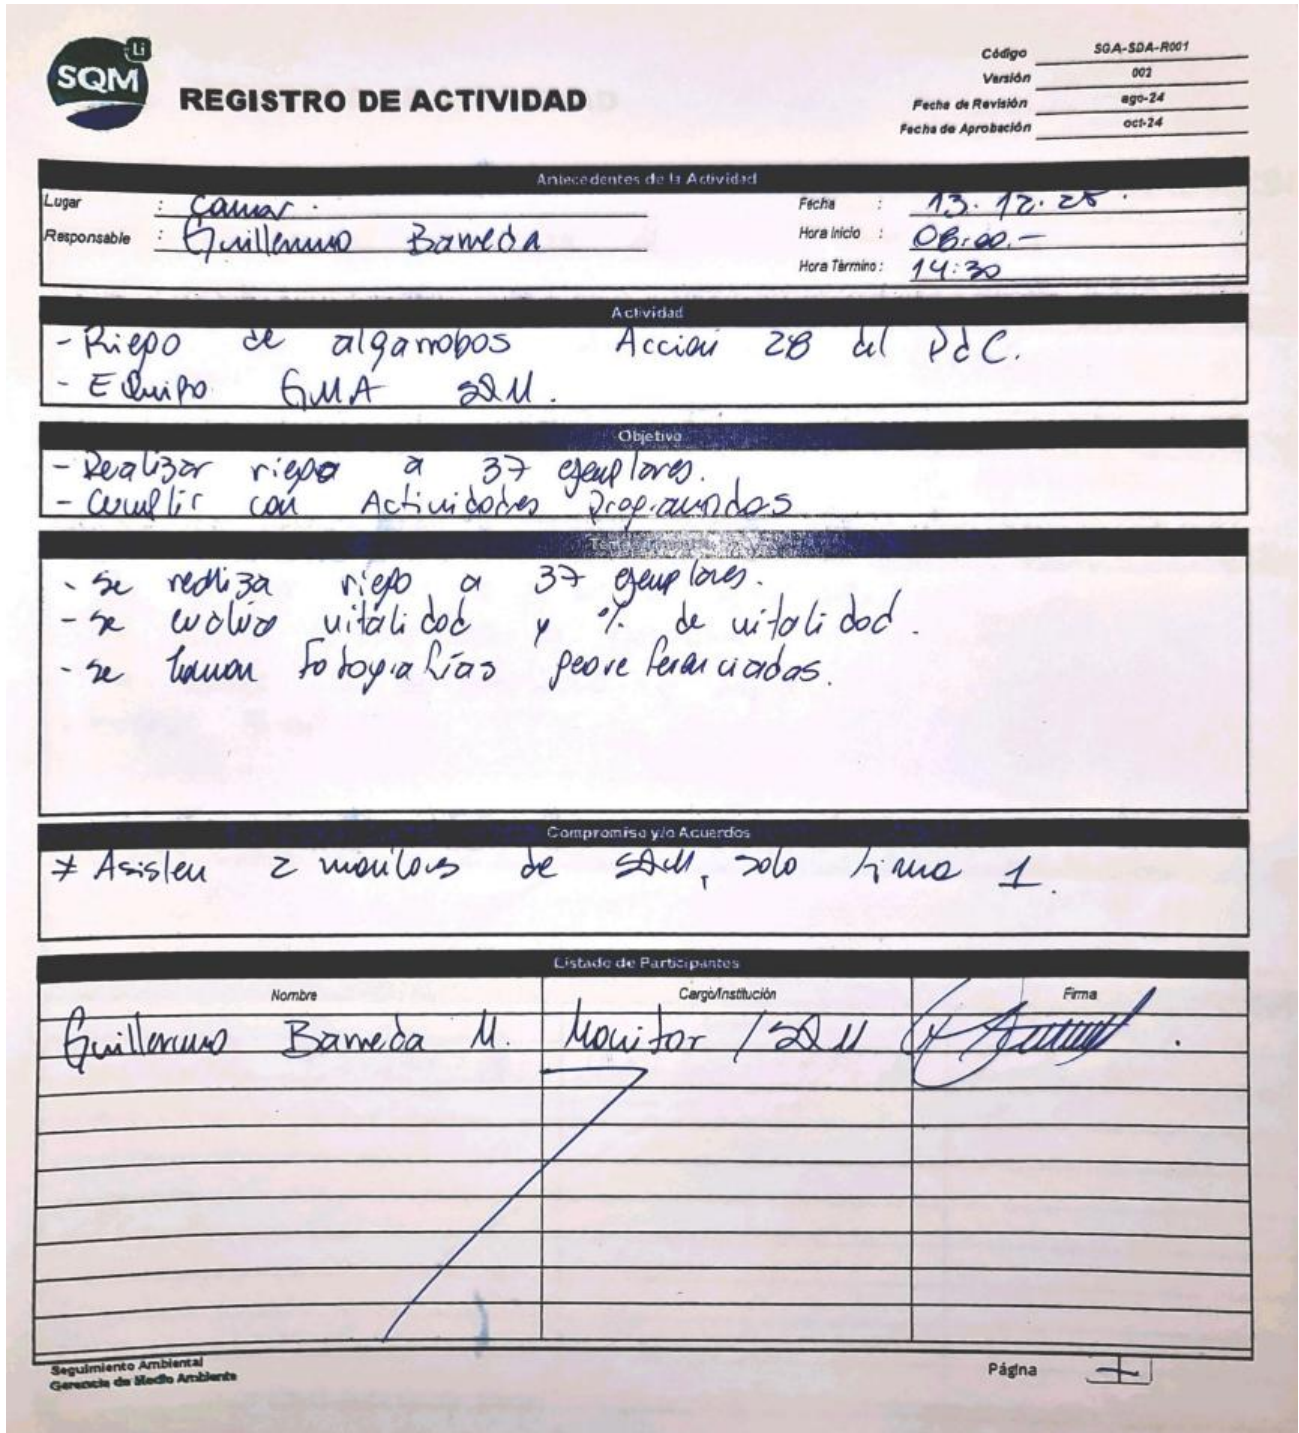 Li
SQM
REGISTRO DE ACTIVIDAD
Código SGA-SDA-R001
Versión 002
Fecha de Revisión ago-24
Fecha de Aprobación oct-24
Antecedentes de la Actividad
Lugar : Camar.
Fecha : 13.12.25.
Responsable : Guillermo Barreda
Hora Inicio : 08:00.-
Hora Término : 14:30
Actividad
- Riego de algarrobos Acción 28 del PdC.
- Equipo GMA SQM.
Objetivo
- Realizar riego a 37 ejemplares.
- Cumplir con Actividades Programadas
- Se realiza riego a 37 ejemplares.
- Se evalúa vitalidad y % de vitalidad.
- Se toman fotografías georeferenciadas.
Compromiso y/o Acuerdos
* Asisten 2 monitores de SQM, solo firma 1.
Listado de Participantes
Nombre Cargo/Institución Firma
Guillermo Barreda M. Monitor / SQM
Seguimiento Ambiental
Gerencia de Medio Ambiente
Página 1